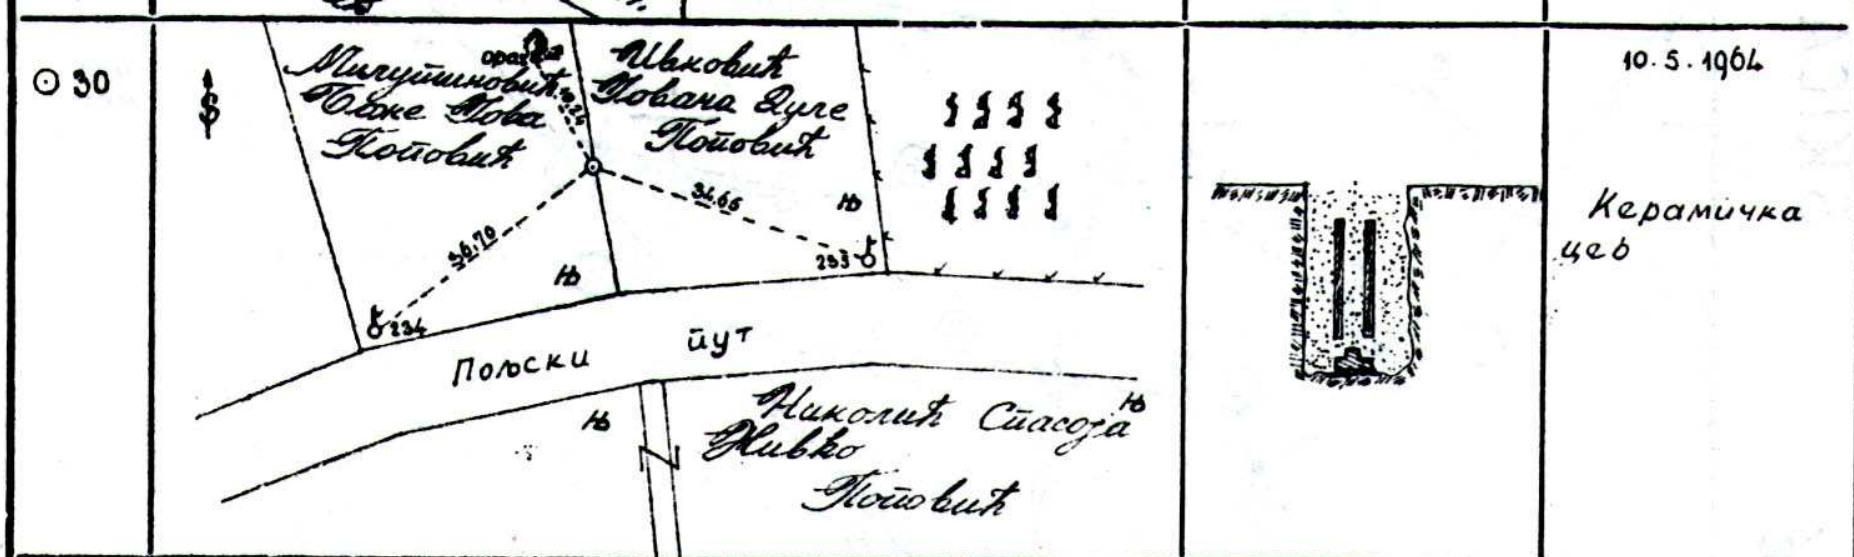 30
ора
Милутиновић
Јова
Поповић
Ивковић
Јована Дуле
Поповић
36.70
34.66
233
234
Њ
Њ
Пољски пут
Њ
Њ
Николић Спасоја
Живко
Поповић
10.5.1964
Керамичка
цев